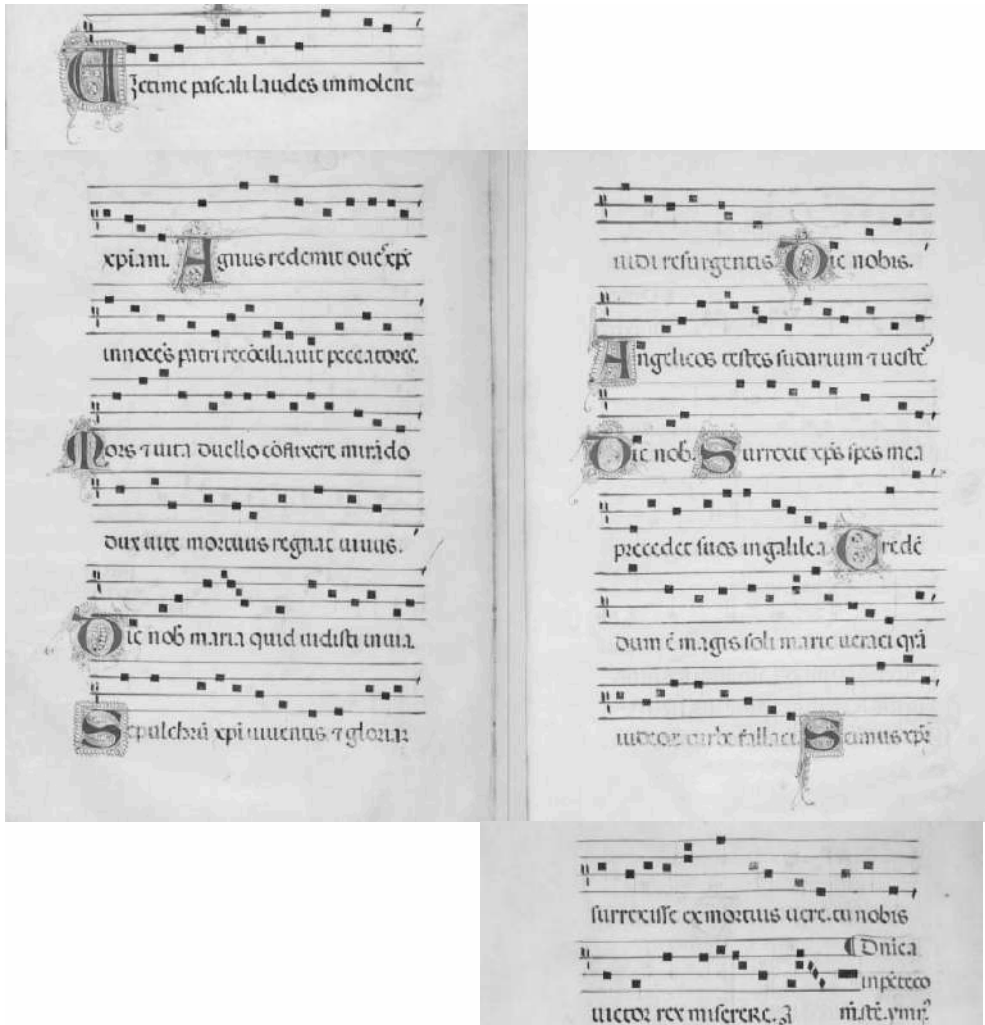 Uictime pascali laudes immolent
xpiani. Agnus redemit oues xpc
innoces patri recociliauit peccatores.
Mors ⁊ uita duello cōflixere mirādo
dux uite mortuus regnat uiuus.
Dic nob maria quid uidisti in uia.
Sepulchrū xpi uiuentis ⁊ gloriā
uidi resurgentis Dic nobis.
Angelicos testes sudarium ⁊ ueste
Dic nob. Surrexit xps spes mea
precedet suos in galilea Credē
dum ē magis soli marie ueraci qꝫ
iudeoꝝ turbe fallaci Scimus xpm
surrexisse ex mortuis uere. tu nobis
uictor rex miserere.
Dnica
in pētecō